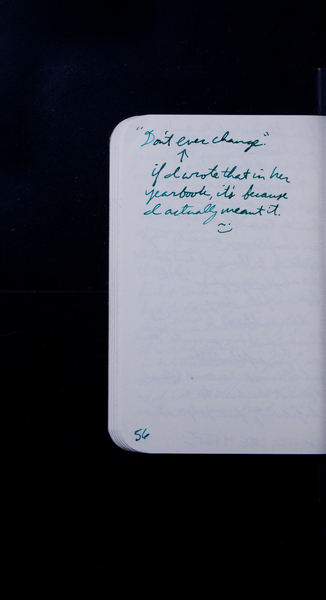 "Don't ever change".
↑
if I wrote that in her
yearbook, it's because
I actually meant it.
:)
56